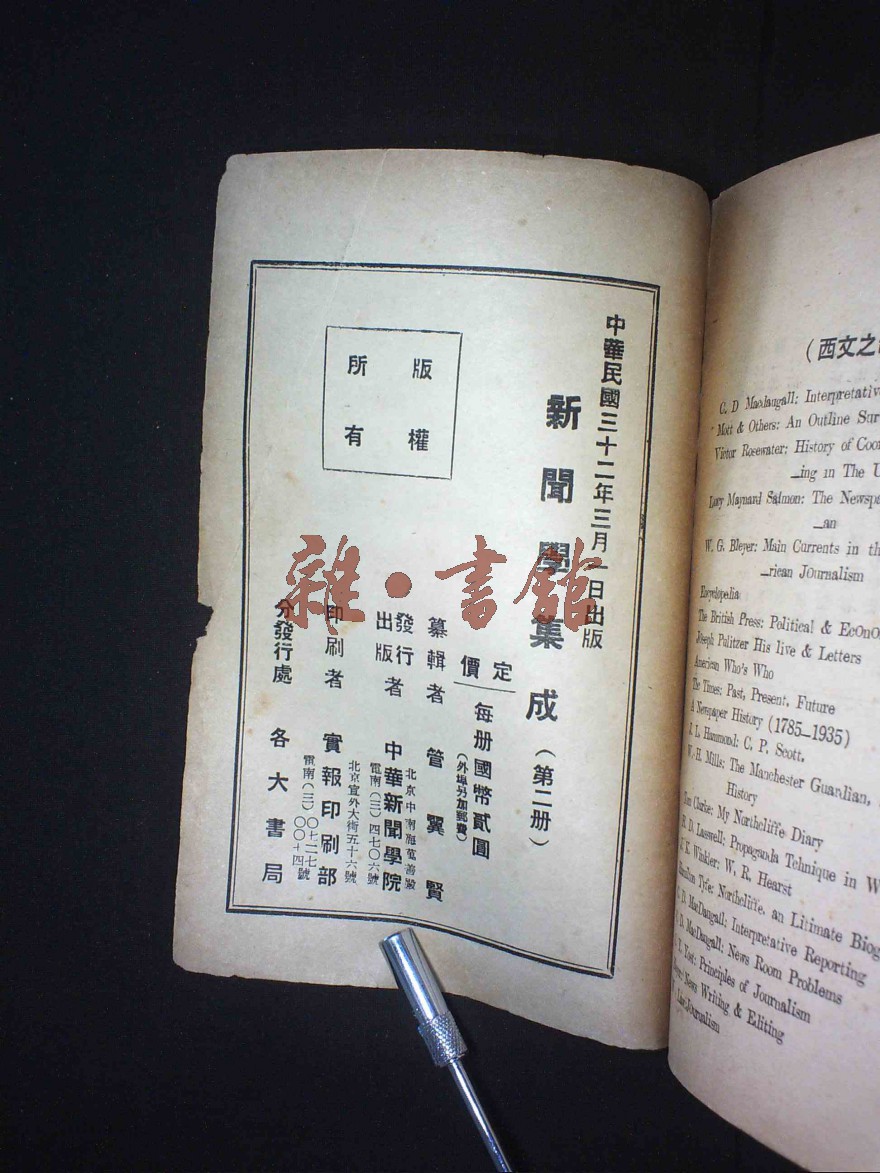 中華民國三十二年三月一日出版
新聞學集成(第二册)
定價
每册國幣貳圓
(外埠另加郵費)
纂輯者 管翼賢
發行
出版者
中華新聞學院
北京中南海萬善殿
電南(三)四七〇六號
印刷者 實報印刷部
北京宣外大街五十六號
電南(三)〇〇七一四二七號
分發行處 各大書局
版權
所有
雜·書館
(西文之
C. D MacDaugall: Interpretative
Mott & Others: An Outline Sur
Victor Rosewater: History of Coo
—ing in The U
Lucy Maynard Salmon: The Newspa
—an
W. G. Bleyer: Main Currents in th
—rican Journalism
Encyclopelia
The British Press: Political & Econo
Joseph Pulitzer His live & Letters
American Who's Who
The Times: Past, Present, Future
A Newspaper History (1785—1935)
J. L. Hammond: C. P. Scott.
W. H. Mills: The Manchester Guardian,
History
Tom Clarke: My Northcliffe Diary
H. D. Lasswell: Propaganda Tehnique in W
K. Winkler: W. R. Hearst
Hamilton Tyfe: Northcliffe. an Litimate Biog
D. MacDaugall: Interpretative Reporting
D. MacDaugall: News Room Problems
Yost: Principles of Journalism
News Writing & Editing
Journalism